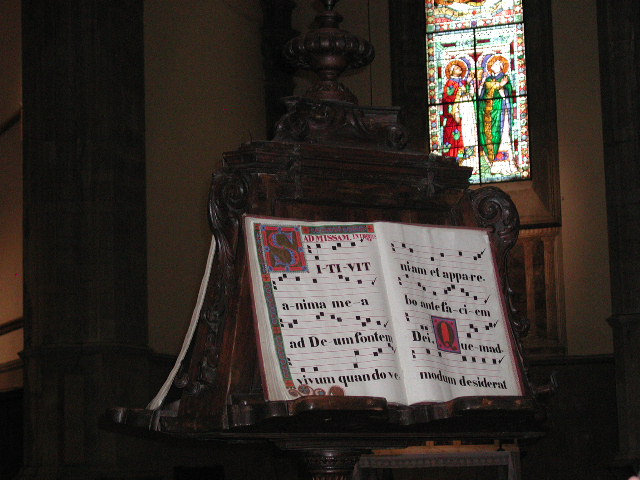 AD MISSAM,
SITIVIT
a-nima me-a
ad De-um fontem
vivum quando ve
niam et appare.
bo ante fa-ci-em
Dei. Que-mad-
modum desiderat